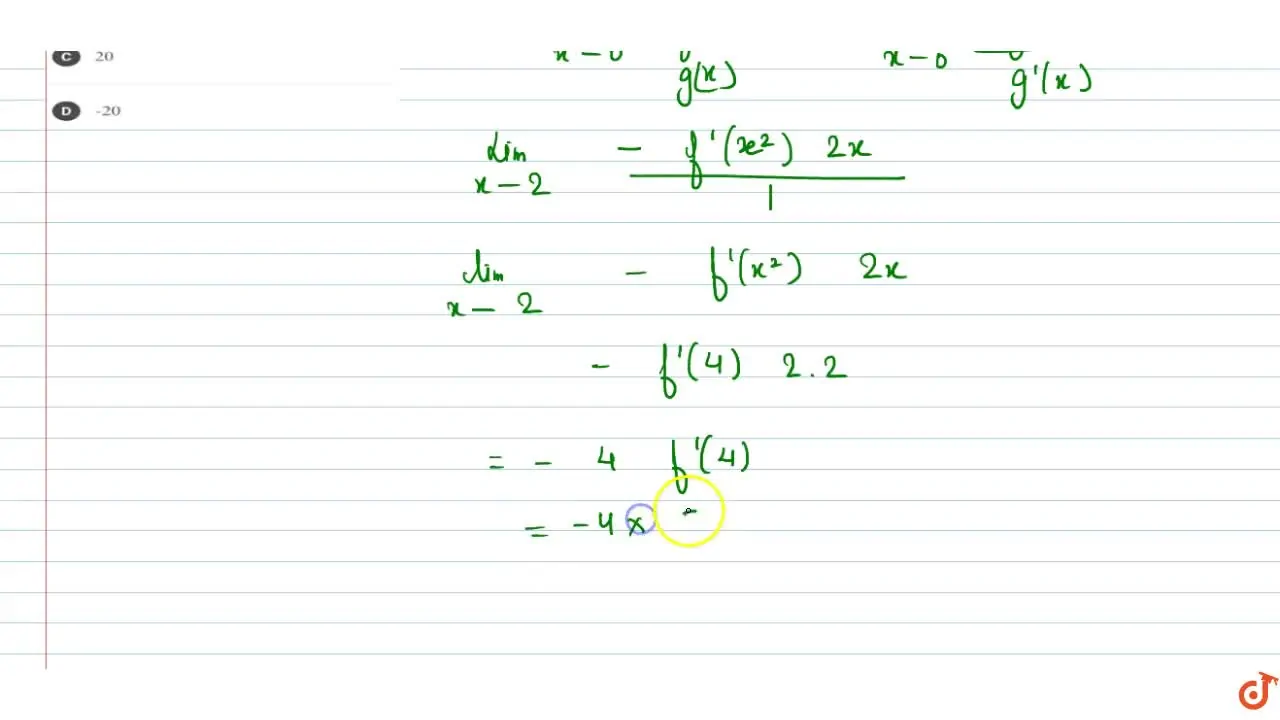 C 20
x – 0 g(x) x – 0 g'(x)
D -20
Lim x – 2 – f'(x²) 2x / 1
lim x – 2 – f'(x²) 2x
– f'(4) 2.2
= – 4 f'(4)
= – 4 x